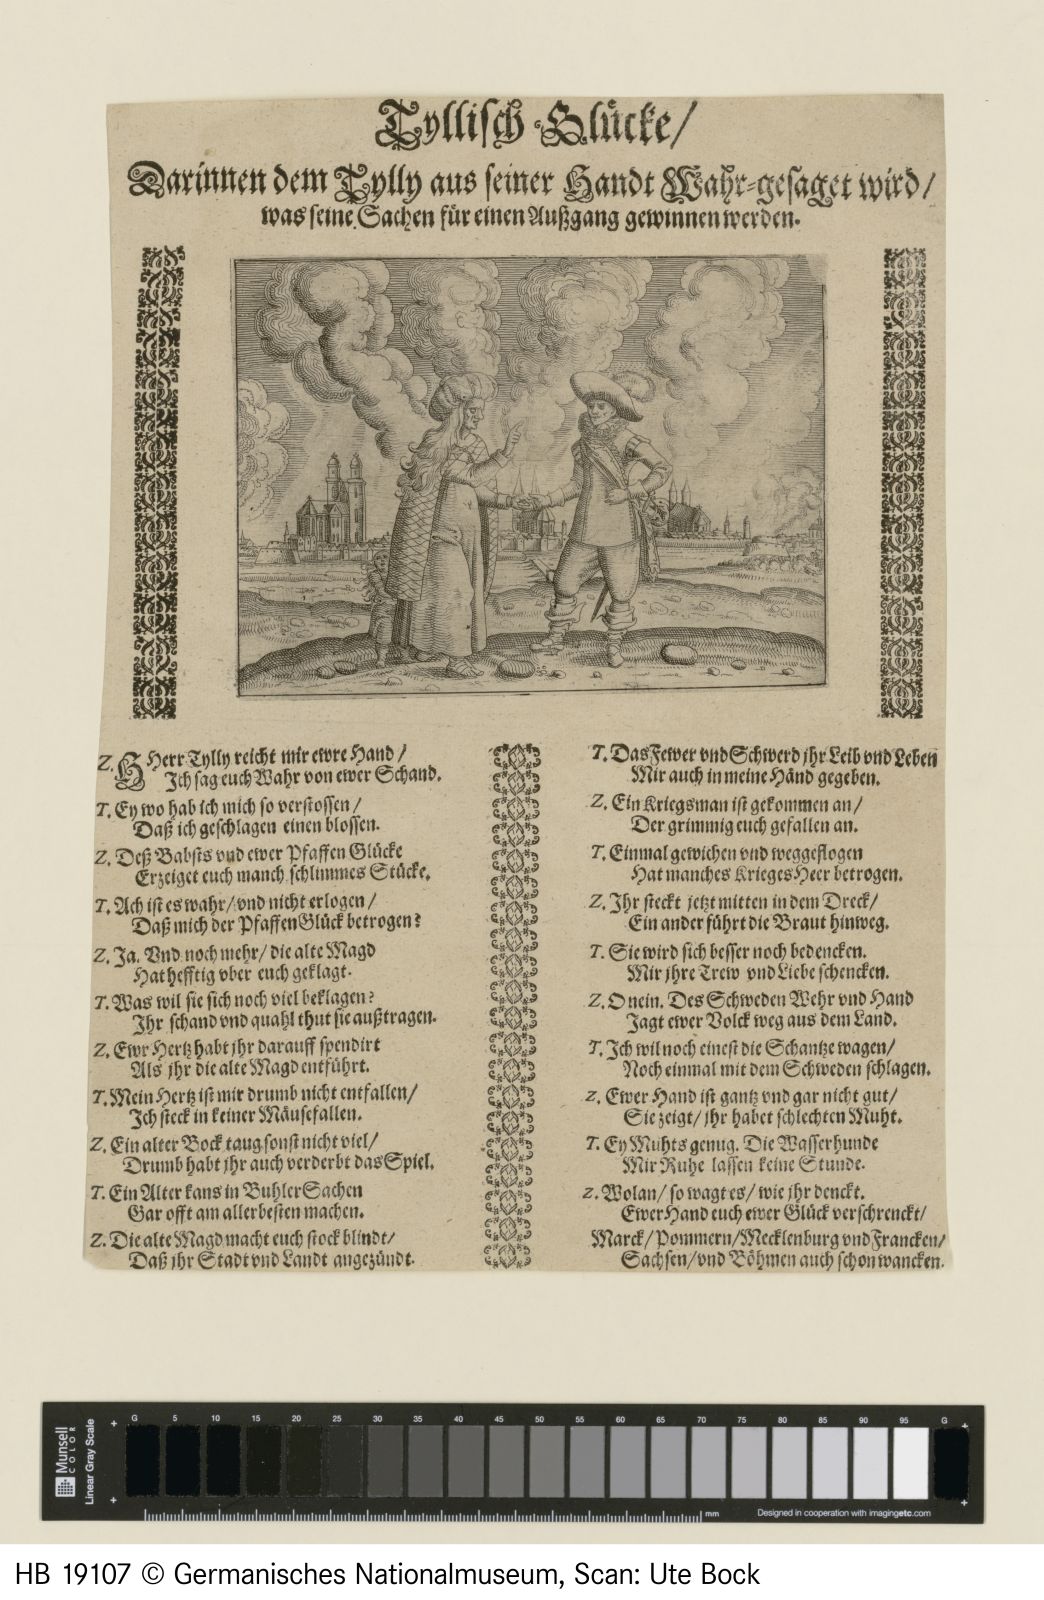 Tyllisch Glücke/
Darinnen dem Tylly aus seiner Handt Wahr-gesaget wird/
was seine Sachen für einen Außgang gewinnen werden.
Z. H Herr Tylly reicht mir ewre Hand/
Ich sag euch Wahr von ewer Schand.
T. Ey wo hab ich mich so verstossen/
Daß ich geschlagen einen blossen.
Z. Deß Babsts vnd ewer Pfaffen Glücke
Erzeiget euch manch schlimmes Stücke.
T. Ach ist es wahr/ vnd nicht erlogen/
Daß mich der Pfaffen Glück betrogen?
Z. Ja. Vnd noch mehr/ die alte Magd
Hat hefftig vber euch geklagt.
T. Was wil sie sich noch viel beklagen?
Ihr schand vnd quahl thut sie außtragen.
Z. Ewr Hertz habt jhr darauff spendirt
Als jhr die alte Magd entführt.
T. Mein Hertz ist mir drumb nicht entfallen/
Ich steck in keiner Mäusefallen.
Z. Ein alter Bock taug sonst nicht viel/
Drumb habt jhr auch verderbt das Spiel.
T. Ein Alter kans in Buhler Sachen
Gar offt am allerbesten machen.
Z. Die alte Magd macht euch stock blindt/
Daß jhr Stadt vnd Landt angezündt.
T. Das Fewer vnd Schwerd jhr Leib vnd Leben
Mir auch in meine Händ gegeben.
Z. Ein Kriegsman ist gekommen an/
Der grimmig euch gefallen an.
T. Einmal gewichen vnd weggeflogen
Hat manches Krieges Heer betrogen.
Z. Ihr steckt jetzt mitten in dem Dreck/
Ein ander führt die Braut hinweg.
T. Sie wird sich besser noch bedencken.
Mir jhre Trew vnd Liebe schencken.
Z. O nein. Des Schweden Wehr vnd Hand
Jagt ewer Volck weg aus dem Land.
T. Ich wil noch einest die Schantze wagen/
Noch einmal mit dem Schweden schlagen.
Z. Ewer Hand ist gantz vnd gar nicht gut/
Sie zeigt/ jhr habet schlechten Muht.
T. Ey Muhts genug. Die Wasserhunde
Mir Ruhe lassen keine Stunde.
Z. Wolan/ so wagt es/ wie jhr denckt.
Ewer Hand euch ewer Glück verschrenckt/
Marck/ Pommern/ Mecklenburg vnd Francken/
Sachsen/ vnd Böhmen auch schon wancken.
Munsell COLOR Linear Gray Scale
G 5 10 15 20 25 30 35 40 45 50 55 60 65 70 75 80 85 90 95 G
mm Designed in cooperation with imagingetc.com
HB 19107 © Germanisches Nationalmuseum, Scan: Ute Bock